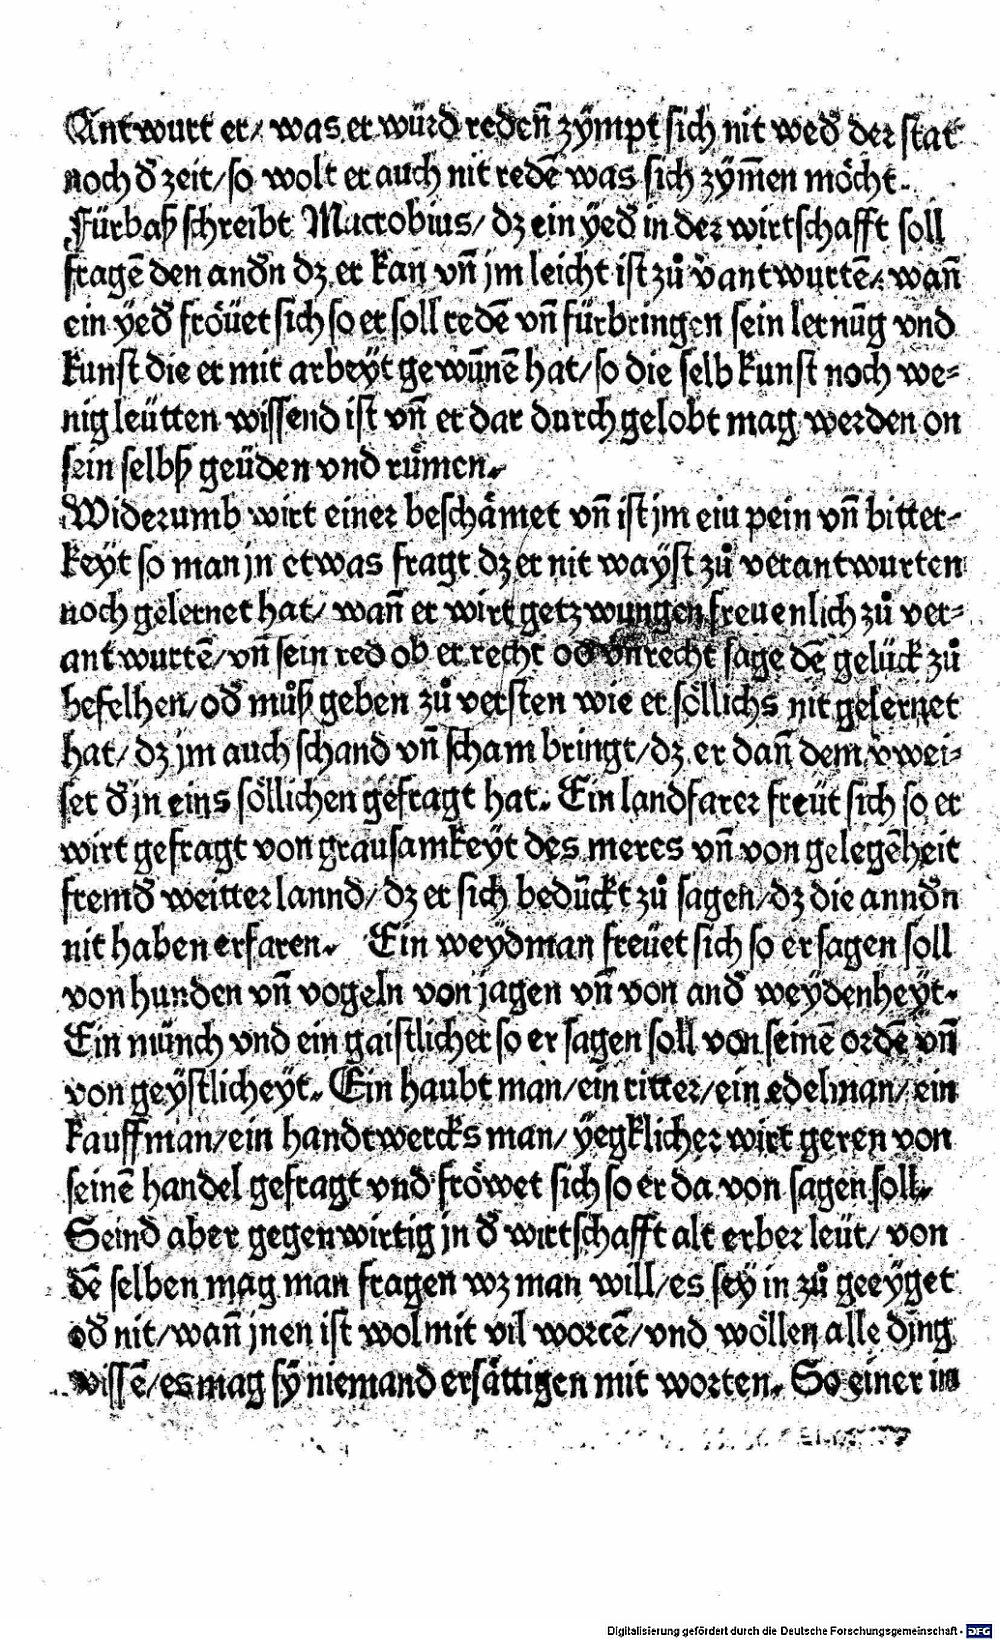 Antwurt er/ was er würd redenn̄ zympt sich nit wed̕ der stat
noch d̕ zeit/ so wolt er auch nit redē was sich zym̄en möcht.
Fürbaß schreibt Macrobius/ dz ein yed̕ in der wirtschafft soll
fragē den and̕n dz er kan vn̄ jm leicht ist zů v̕antwurtē/ wan̄
ein yed̕ fröuet sich so er soll redē vn̄ fürbringen sein lernūg vnd
kunst die er mit arbeyt gewūnē hat/ so die selb kunst noch we⸗
nig leütten wissend ist vn̄ er dar durch gelobt mag werden on
sein selbß geüden vnd rümen.
Widerumb wirt einer beschämet vn̄ ist jm eiu pein vn̄ bitter⸗
keyt so man jn etwas fragt dz er nit wayst zů verantwurten
noch gelernet hat/ wan̄ er wirt getzwungen freuenlich zů ver⸗
antwurtē/ vn̄ sein red ob er recht od̕ vnrecht sage dē gelück zů
befelhen/ od̕ můß geben zů versten wie er söllichs nit gelernet
hat/ dz jm auch schand vn̄ scham bringt/ dz er dan̄ dem v̕wei⸗
set d̕ jn eins söllichen gefragt hat. Ein landfarer freüt sich so er
wirt gefragt von grausamkeyt des meres vn̄ von gelegēheit
fremd̕ weitter lannd/ dz er sich bedückt zů sagen/ dz die annd̕n
nit haben erfaren. Ein weydman freüet sich so er sagen soll
von hunden vn̄ vogeln von jagen vn̄ von and̕ weydenheyt.
Ein münch vnd ein gaistlicher so er sagen soll von seinē ordē vn̄
von geystlicheyt. Ein haubt man/ ein ritter/ ein edelman/ ein
kauffman/ ein handtwercks man/ yegklicher wirt geren von
seinē handel gefragt vnd fröwet sich so er da von sagen soll.
Seind aber gegenwirtig jn d̕ wirtschafft alt erber leüt/ von
dē selben mag man fragen wz man will/ es sey in zů geeyget
od̕ nit/ wan̄ jnen ist wol mit vil wortē/ vnd wöllen alle ding
wissē/ es mag sy niemand ersättigen mit worten. So einer in
Digitalisierung gefördert durch die Deutsche Forschungsgemeinschaft - DFG